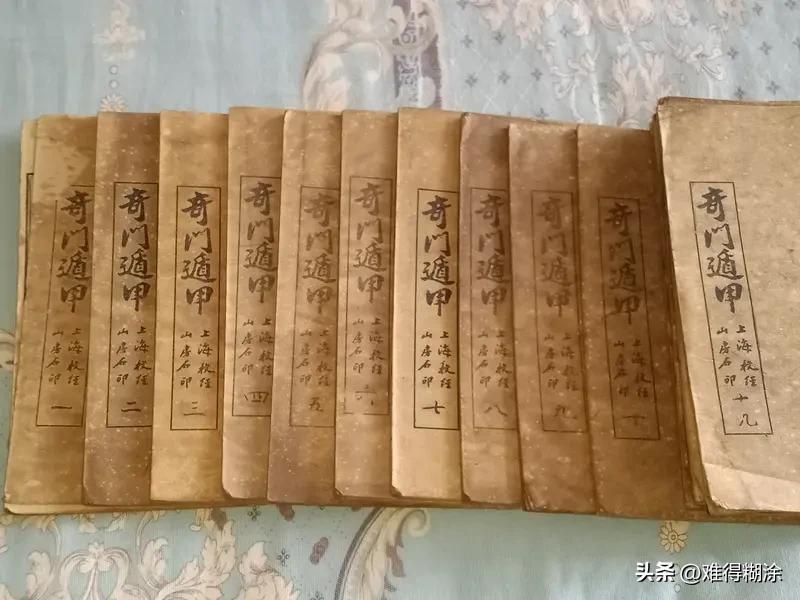 奇門遁甲
上海校經
山房石印
一
奇門遁甲
上海校經
山房石印
二
奇門遁甲
上海校經
山房石印
三
奇門遁甲
上海校經
山房石印
四
奇門遁甲
上海校經
山房石印
五
奇門遁甲
上海校經
山房石印
六
奇門遁甲
上海校經
山房石印
七
奇門遁甲
上海校經
山房石印
八
奇門遁甲
上海校經
山房石印
九
奇門遁甲
上海校經
山房石印
十
奇門遁甲
上海校經
山房石印
十九
头条 @难得糊涂